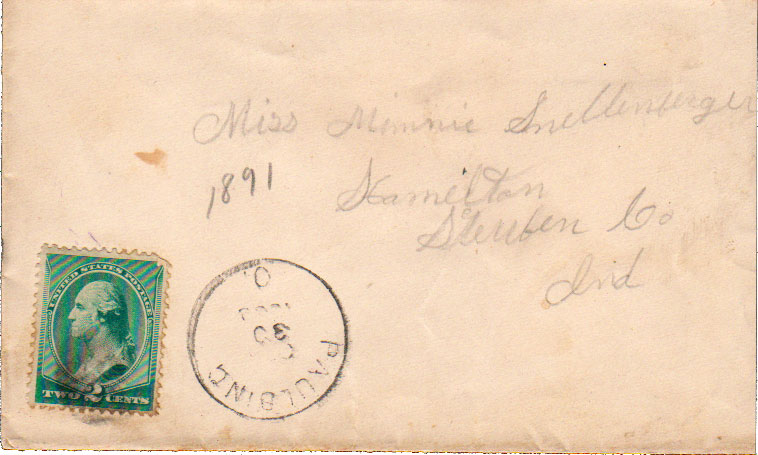 Miss Minnie Snellenberger
1891
Hamilton
Steuben Co
Ind
UNITED STATES POSTAGE
2
TWO CENTS
PAULDING, O.
30